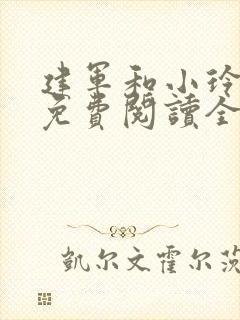 建军和小玲
免費閱讀全
凱尔文霍尔茨